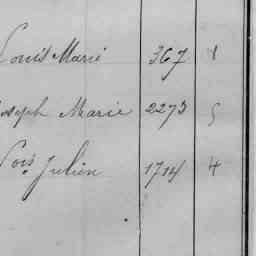 Louis Marie 367 1
Joseph Marie 2273 5
Fois Julien 1714 4